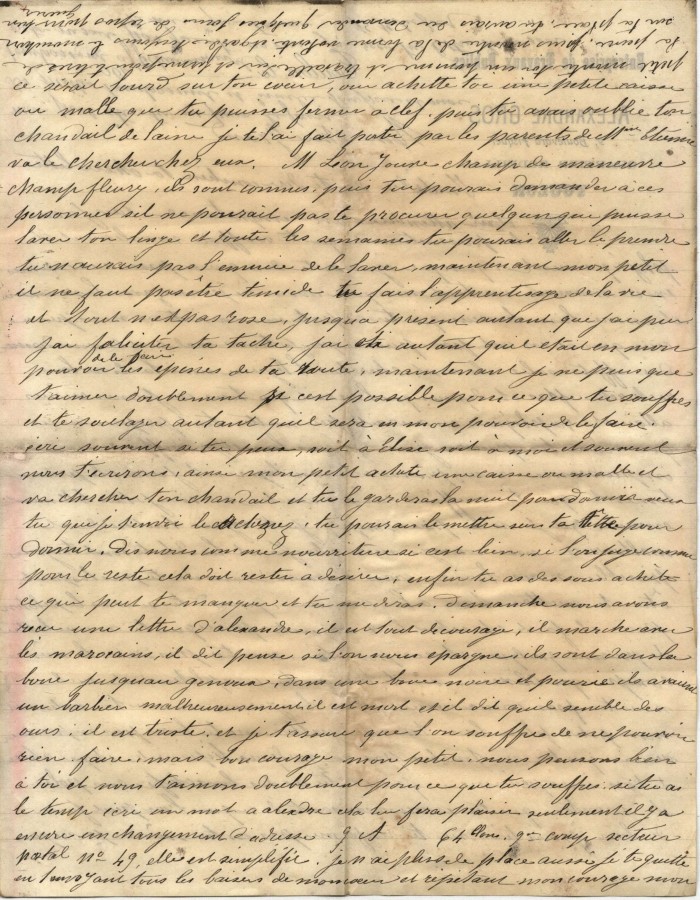 ce serait lourd sur ton cœur, ou achette toi une petite caisse
ou malle que tu puisses fermer à clef. puis tu avais oublié ton
chandail de laine je te l'ai fait porter par les parents de Mme Etienne
va le chercher chez eux. M Léon Jouve champ de maneuvre
champfleury, ils sont connus. puis tu pourais demander à ces
personnes s'il ne pourait pas te procurer quelqu'un qui puisse
laver ton linge et toute les semaines tu pourais aller le prendre
tu n'aurais pas l'ennuie de le laver, maintenant mon petit
il ne faut pas être timide tu fais l'apprentissage de la vie
et tout n'est pas rose, jusqua présent autant que j'ai pu
j'ai faliciter ta tache, j'ai autant qu'il était en mon
de le faire
pouvoir les épines de ta route, maintenant je ne puis que
t'aimer doublement si cest possible pour ce que tu souffres
et te soulager autant qu'il sera en mon pouvoir de le faire.
écri souvent si tu peux, soit à Elise soit à moi et souvent
nous t'ecrirons, ainsi mon petit achète une caisse ou malle et
va chercher ton chandail et tu le garderas la nuit pour dormir veux
tu que je t'envoi le cachenez, tu pourais le mettre sur ta tête pour
dormir. Dis nous comme nourriture si c'est bien, si l'on juge comme
pour le reste cela doit rester à désirer, enfin tu as des sous achete
ce qui peut te manquer et tu me diras. Dimanche nous avons
recu une lettre d'alexandre, il est tout découragé, il marche avec
les marocains, il dit pense si l'on nous épargne, ils sont dans la
boue jusquau genoux, dans une boue noire et pourrie ils avaient
un barbier malheureusement il est mort et il dit qu'il semble des
ours. il est triste, et je t'assure que l'on souffre de ne pouvoir
rien faire, mais bon courage mon petit. nous pensons bien
à toi et nous t'aimons doublement pour ce que tu souffres. si tu as
le temp écri un mot a alexdre cela lui fera plaisir seulement il y a
encore un changement d'adresse. 9 A 64 9e comp secteur
postal no 49, elle est simplifié. je n'ai plus de place aussi je te quitte
en t'envoyant tous les baisers de mon cœur et répétant mon courage mon